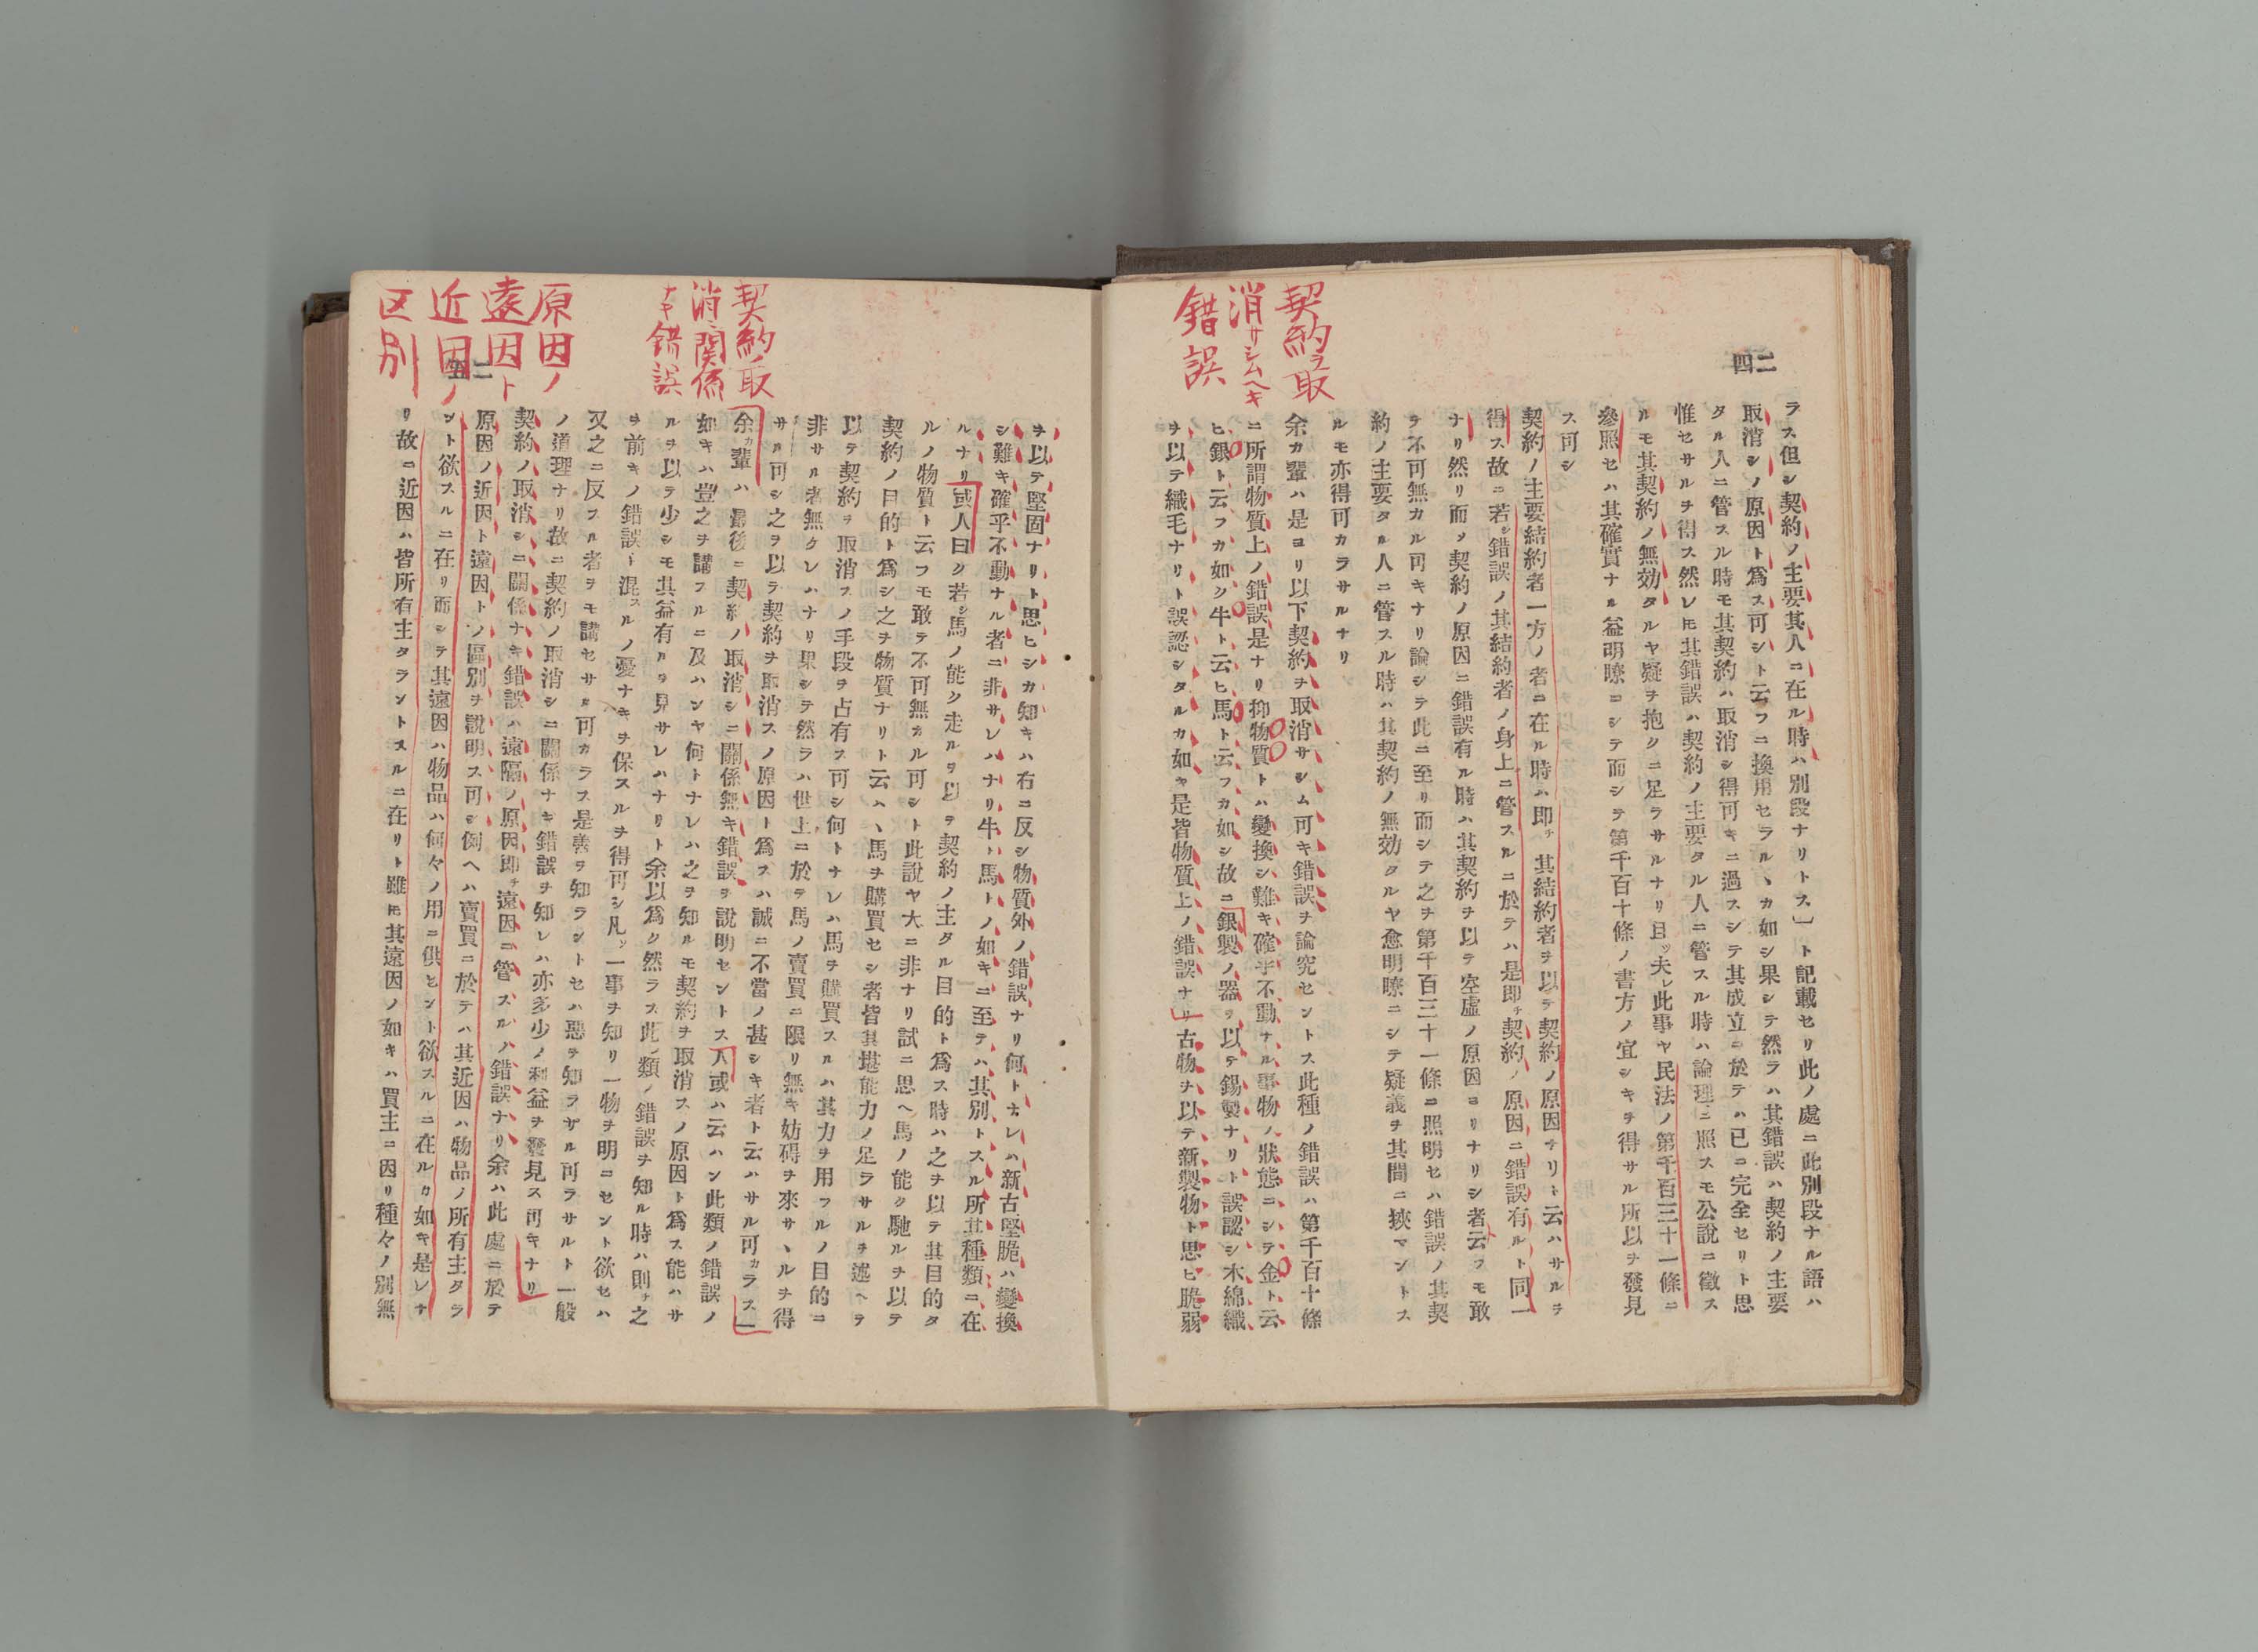 契約ヲ取
消サシムヘキ
錯誤
二四
ラス但シ契約ノ主要其人ニ在ル時ハ別段ナリトス」ト記載セリ此ノ處ニ此別段ナル語ハ
取消シノ原因ト爲ス可シト云フニ換用セラルヽカ如シ果シテ然ラハ其錯誤ハ契約ノ主要
タル人ニ管スル時モ其契約ハ取消シ得可キニ過スシテ其成立ニ於テハ已ニ完全セリト思
惟セサルヲ得ス然レ𪜈其錯誤ハ契約ノ主要タル人ニ管スル時ハ論理ニ照スモ公説ニ徴ス
ルモ其契約ノ無効タルヤ疑ヲ抱クニ足ラサルナリ且ツ夫レ此事ヤ民法ノ第千百三十一條ニ
參照セハ其確實ナル益明瞭ニシテ而シテ第千百十條ノ書方ノ宜シキヲ得サル所以ヲ發見
ス可シ
契約ノ主要結約者一方ノ者ニ在ル時ハ即チ其結約者ヲ以テ契約ノ原因ナリト云ハサルヲ
得ス故ニ若シ錯誤ノ其結約者ノ身上ニ管スルニ於テハ是即チ契約ノ原因ニ錯誤有ルト同一
ナリ然リ而ソ契約ノ原因ニ錯誤有ル時ハ其契約ヲ以テ空虚ノ原因ヨリナリシ者云フモ敢
テ不可無カル可キナリ論シテ此ニ至リ而シテ之ヲ第千百三十一條ニ照明セハ錯誤ノ其契
約ノ主要タル人ニ管スル時ハ其契約ノ無効タルヤ愈明瞭ニシテ疑義ヲ其間ニ挾マントス
ルモ亦得可カラサルナリ
余カ輩ハ是ヨリ以下契約ヲ取消サシム可キ錯誤ヲ論究セントス此種ノ錯誤ハ第千百十條
ニ所謂物質上ノ錯誤是ナリ抑物質トハ變換シ難キ確乎不動ナル事物ノ狀態ニシテ金ト云
ヒ銀ト云フカ如ク牛ト云ヒ馬ト云フカ如シ故ニ銀製ノ器ヲ以テ錫製ナリト誤認シ木綿織
ヲ以テ織毛ナリト誤認シタルカ如キ是皆物質上ノ錯誤ナリ古物ヲ以テ新製物ト思ヒ脆弱
契約ノ取
消ニ関係
ナキ錯誤
原因ノ
遠因ト
近因ノ
区別
二五
ヲ以テ堅固ナリト思ヒシカ如キハ右ニ反シ物質外ノ錯誤ナリ何トナレハ新古堅脆ハ變換
シ難キ確乎不動ナル者ニ非サレハナリ牛ト馬トノ如キニ至テハ其別トスル所其種類ニ在
ルナリ或人曰ク若シ馬ノ能ク走ルヲ以テ契約ノ主タル目的ト爲ス時ハ之ヲ以テ其目的タ
ルノ物質ト云フモ敢テ不可無カル可シト此説ヤ大ニ非ナリ試ニ思ヘ馬ノ能ク馳ルヲ以テ
契約ノ目的ト爲シ之ヲ物質ナリト云ハヽ馬ヲ購買セシ者皆其堪能力ノ足ラサルヲ述ヘテ
以テ契約ヲ取消スノ手段ヲ占有ス可シ何トナレハ馬ヲ購買スルハ其力ヲ用フルノ目的ニ
非サル者無クレハナリ果シテ然ラハ世上ニ於テ馬ノ賣買ニ限リ無キ妨碍ヲ來サヽルヲ得
サル可シ之ヲ以テ契約ヲ取消スノ原因ト爲スハ誠ニ不當ノ甚シキ者ト云ハサル可カラス
余カ輩ハ最後ニ契約ノ取消シニ關係無キ錯誤ヲ説明セントス人或ハ云ハン此類ノ錯誤ノ
如キハ豈之ヲ講フルニ及ハンヤ何トナレハ之ヲ知ルモ契約ヲ取消スノ原因ト爲ス能ハサ
ルヲ以テ少シモ其益有ルヲ見サレハナリト余以爲ク然ラス此類ノ錯誤ヲ知ル時ハ則チ之
ヲ前キノ錯誤ト混スルノ憂ナキヲ保スルヲ得可シ凡ソ一事ヲ知リ一物ヲ明ニセント欲セハ
又之ニ反スル者ヲモ講セサル可カラス是善ヲ知ラントセハ惡ヲ知ラザル可ラサルト一般
ノ道理ナリ故ニ契約ノ取消シニ關係ナキ錯誤ヲ知レハ亦多少ノ利益ヲ發見ス可キナリ
契約ノ取消シニ關係ナキ錯誤ハ遠隔ノ原因即チ遠因ニ管スルノ錯誤ナリ余ハ此處ニ於テ
原因ノ近因ト遠因トノ區別ヲ說明ス可シ例ヘハ賣買ニ於テハ其近因ハ物品ノ所有主タラ
ント欲スルニ在リ而シテ其遠因ハ物品ハ何々ノ用ニ供セント欲スルニ在ルカ如キ是レナ
リ故ニ近因ハ皆所有主タラントスルニ在リト雖𪜈其遠因ノ如キハ買主ニ因リ種々ノ別無